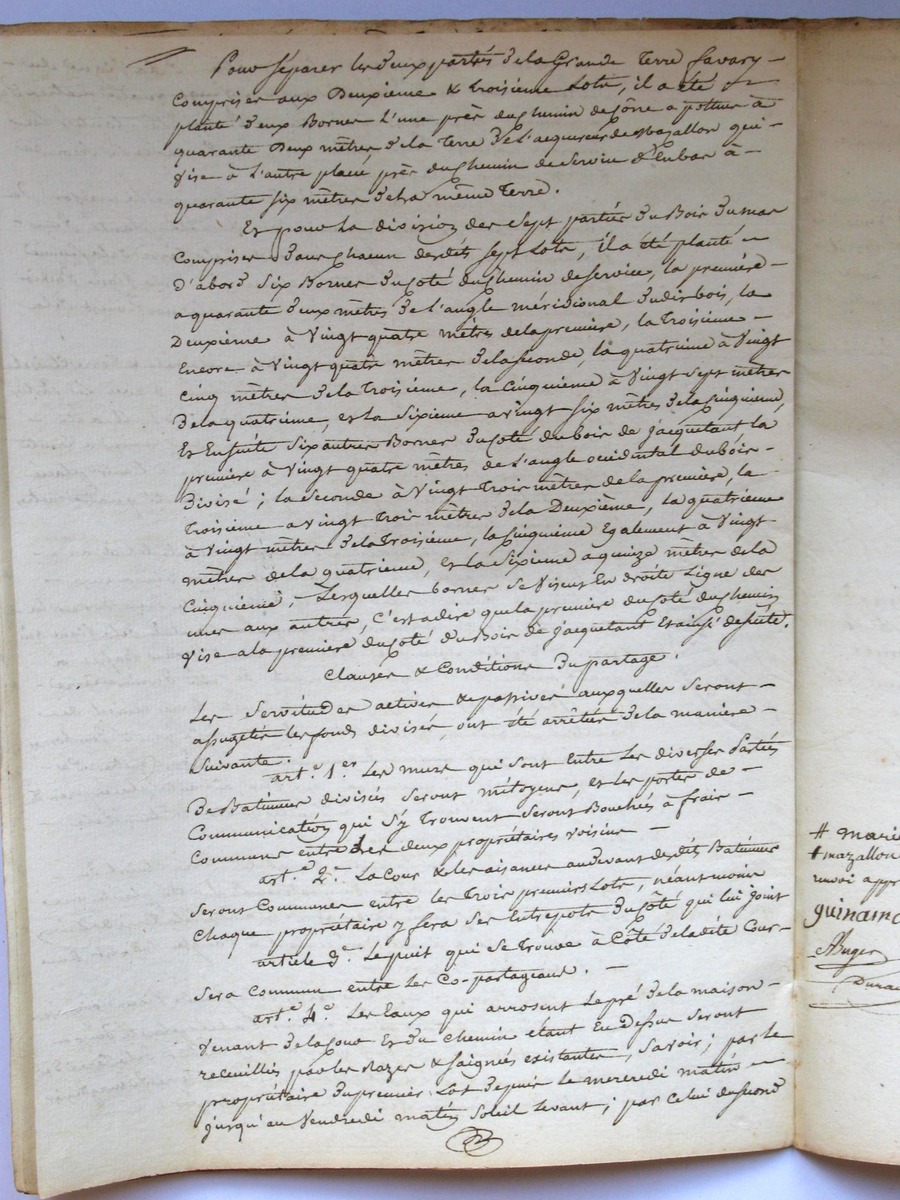 Pour séparer les deux partés de la Grande Terre favary
Comprises aux Deuxieme & troisieme Lots, il a été
planté deux Bornes L'une près du chemin de Cône a potture à
quarante Deux mètres de la Terre de L'acquereur de Mazallon qui
vise à l'autre placé près du chemin de Servin d'Enbas à
quarante six mètres de la même Terre.
Et pour La division des sept partiés du Bois du mas
Comprises dans chacun desdits sept Lots, il a été planté
D'abord Six Bornes du Coté du chemin de service, la première
a quarante deux mètres de l'angle méridional dudit bois, la
Deuxième à Vingt quatre mètres de la première, la Troisieme
Encore à Vingt quatre mètres de la seconde, la quatrieme à Vingt
Cinq mètres de la troisieme, la Cinquieme à Vingt sept mètres
De la quatrieme, et la sixieme a vingt six mètres de la Cinquieme,
Et Ensuite Six autres Bornes du Coté du bois de jacquetant la
première à Vingt quatre mètres de l'angle occidental du bois
Divisé; la seconde à Vingt Trois mètres de la première, la
Troisieme a vingt Trois mètres de la Deuxième, la quatrieme
à Vingt mètres de la Troisieme, la Cinquieme Egalement à Vingt
mètres de la quatrieme, et la Sixieme a quinze mètres de la
Cinquieme, Lesquelles bornes se Visent En droite Ligne des
unes aux autres, C'est adire que la première du Coté du chemin
Vise a la première du Coté du Bois de jacquetant Et ainsi de suite.
Clauses & Conditions du partage.
Les Servitudes actives & passives auxquelles seront
assugetis les fonds divisés, ont été arrêtées de la manière
Suivante.
art.e 1.er Les murs qui sont Entre Les diverses Partiés
De Batimens divisés seront mitoyens, et les portes de
Communication qui s'y Trouvent seront Bouchées à frais
Communs entre les deux propriétaires voisins
art.e 2.e La Cour & les aisances au devant desdits Batimens
seront Communes entre les Trois premiers Lots, néantmoins
Chaque propriétaire y fera ses Entrepots du Coté qui lui joint
article 3.e Le puit qui se Trouve à Côté de ladite Cour
Sera Commun entre Les Co-partageans.
art.e 4.e Les Eaux qui arrosent Le pré de la maison
Venant de la Cour Et du Chemin étant Eu Dessus seront
recueillis par les Razes & saignées existantes, savoir; par le
propriétaire du premier Lot depuis le mercredi matin
jusqu'au Vendredi matin Soleil levant; par Celui du second
# marie
+ mazallon
guinama
Auger
Dura